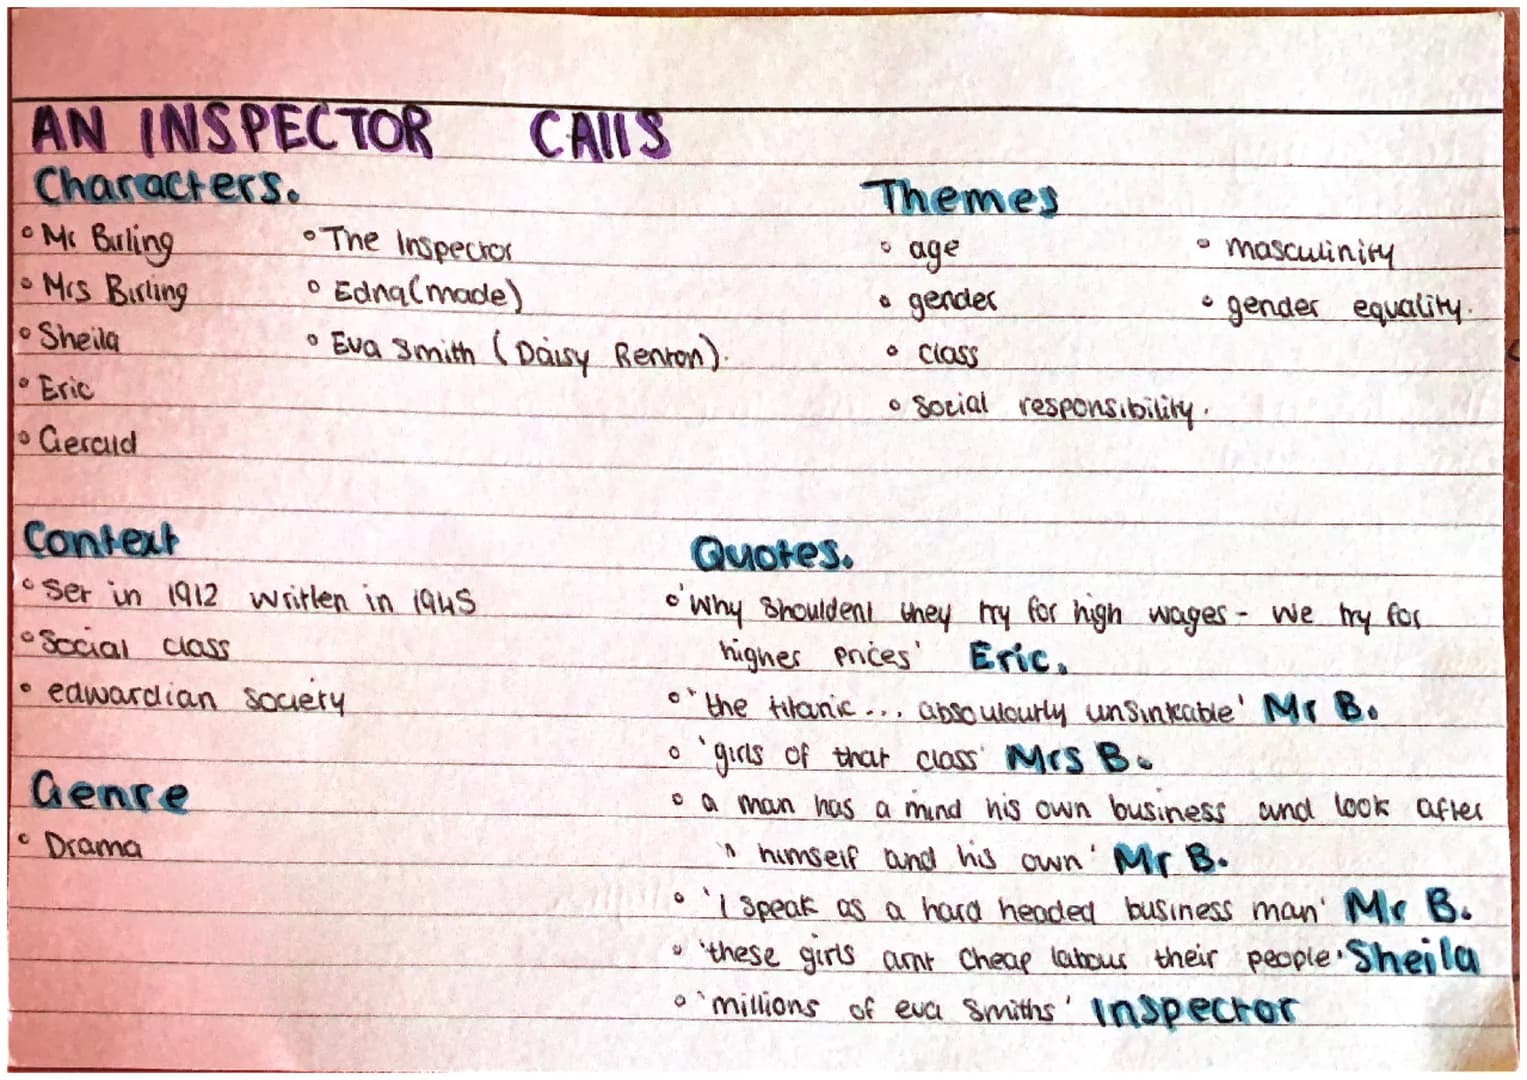 AN INSPECTOR CAllS
Characters.
• Mr Birling
• Mrs Birling
• Sheila
• Eric
• Gerald
• The Inspector
• Edna (made)
• Eva Smith (Daisy Renton).
Themes
• age
• gender
• class
• Social responsibility.
• masculinity
• gender equality.
Context
• Set in 1912 written in 1945
• Social class
• edwardian society
Genre
• Drama
Quotes.
• 'Why Shouldent they try for high wages - we try for
higher prices' Eric.
• 'the titanic... absoulourly unsinkable' Mr B.
• 'girls of that class' Mrs B.
• a man has a mind his own business and look after
himself and his own' Mr B.
• 'I speak as a hard headed business man' Mr B.
• 'these girls arnt cheap labour their people' Sheila
• 'millions of eva smiths' Inspector